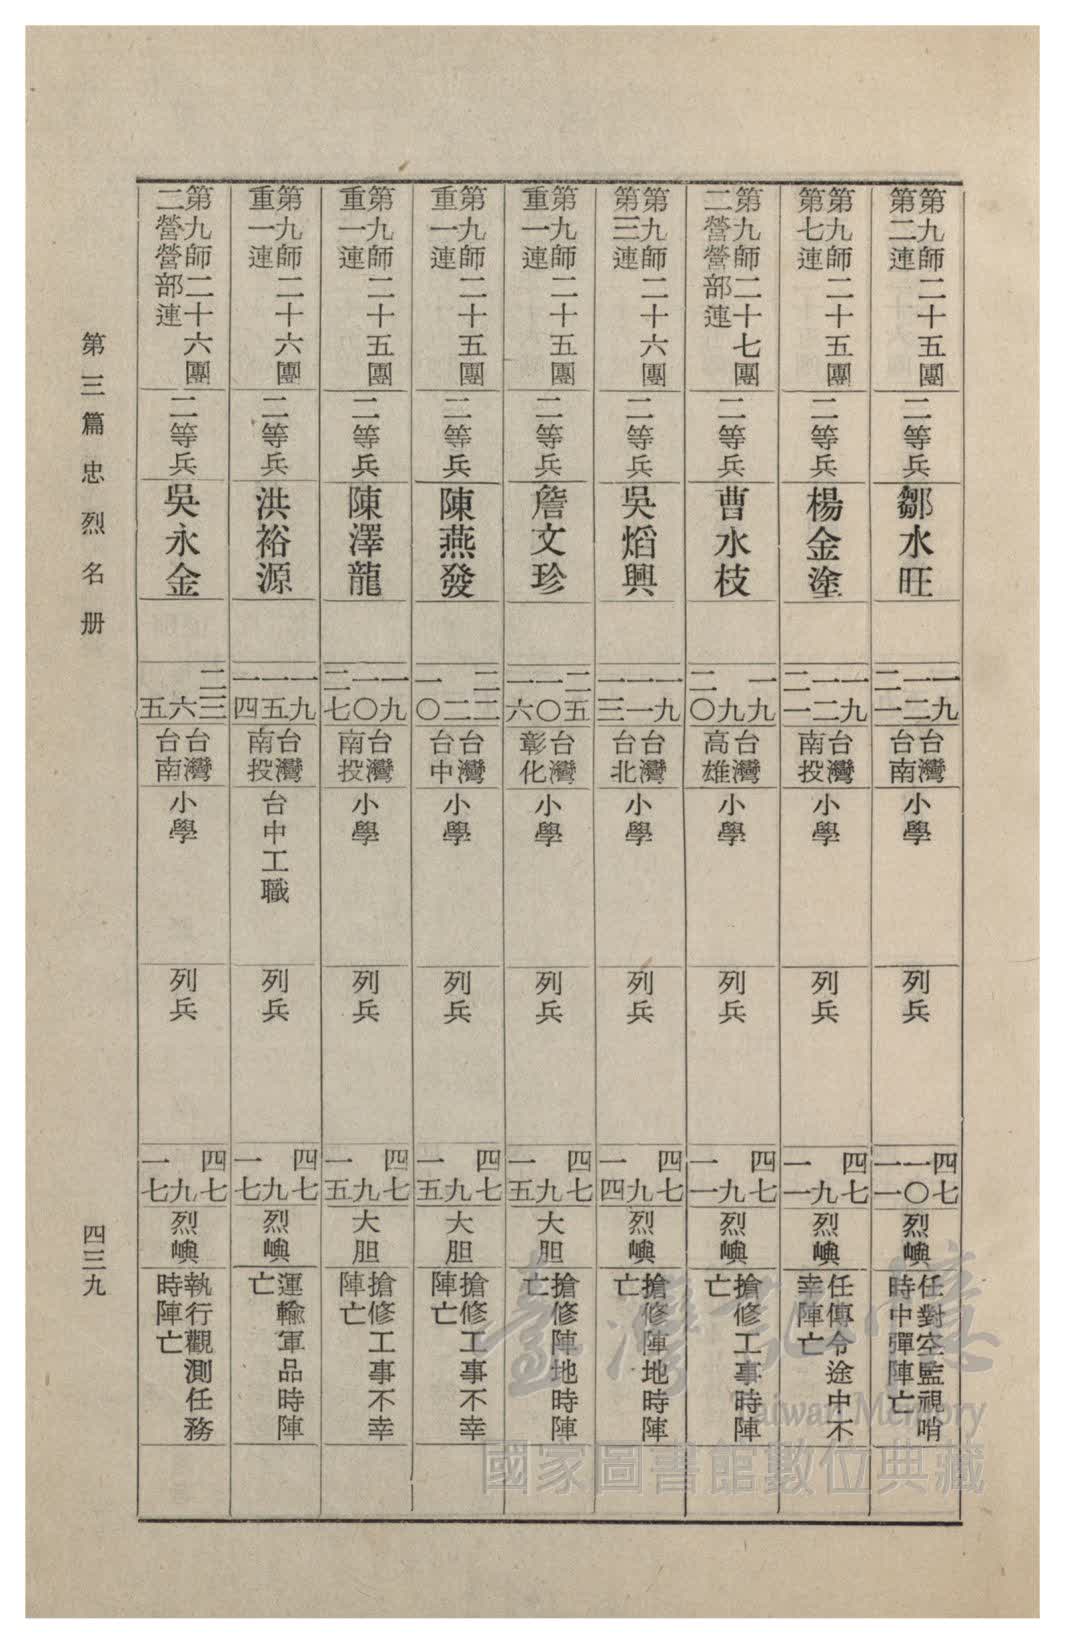 第九師二十五團
第二連
二等兵
鄒水旺
一九
一二
二一
台灣
台南
小學
列兵
四七
一〇
一一
烈嶼
任對空監視哨
時中彈陣亡
第九師二十五團
第七連
二等兵
楊金塗
一九
一二
二一
台灣
南投
小學
列兵
四七
九
一一
烈嶼
任傳令途中不
幸陣亡
第九師二十七團
二營營部連
二等兵
曹水枝
一九
九
二〇
台灣
高雄
小學
列兵
四七
九
一一
烈嶼
搶修工事時陣
亡
第九師二十六團
第三連
二等兵
吳熖興
一九
一一
一三
台灣
台北
小學
列兵
四七
九
一四
烈嶼
搶修陣地時陣
亡
第九師二十五團
重一連
二等兵
詹文珍
二五
一〇
一六
台灣
彰化
小學
列兵
四七
九
一五
大胆
搶修陣地時陣
亡
第九師二十五團
重一連
二等兵
陳燕發
二二
二
一〇
台灣
台中
小學
列兵
四七
九
一五
大胆
搶修工事不幸
陣亡
第九師二十五團
重一連
二等兵
陳澤龍
一九
一〇
二七
台灣
南投
小學
列兵
四七
九
一五
大胆
搶修工事不幸
陣亡
第九師二十六團
重一連
二等兵
洪裕源
一九
一五
一四
台灣
南投
台中工職
列兵
四七
九
一七
烈嶼
運輸軍品時陣
亡
第九師二十六團
二營營部連
二等兵
吳永金
二三
六
五
台灣
台南
小學
列兵
四七
九
一七
烈嶼
執行觀測任務
時陣亡
第三篇忠烈名册
四三九
臺灣記憶
Taiwan Memory
國家圖書館數位典藏